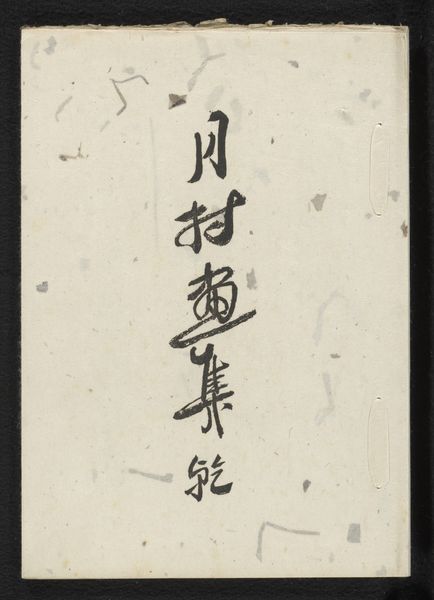 月村畫集乾